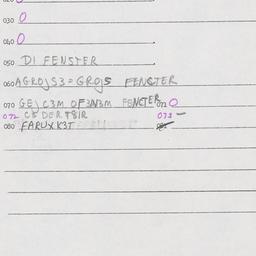 030 0
040 0
050 DI FENSTER
060 AGROJS3=GROJS FENCTER
070 GEJC3M OF3N3M FENCTER 071 0
072 CE DER T8IR 073 —
080 FARUXK3T